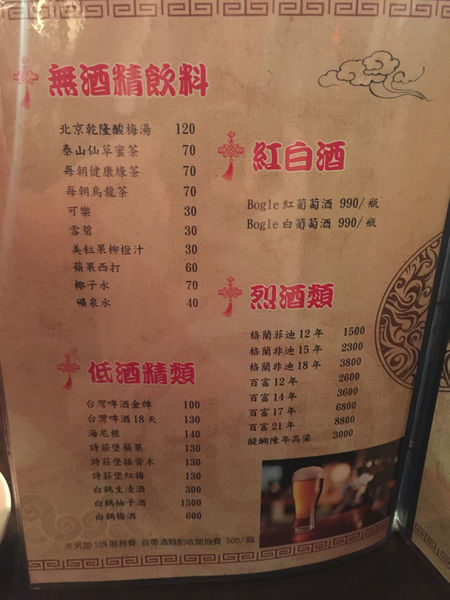 無酒精飲料
北京乾隆酸梅湯 120
泰山仙草蜜茶 70
每朝健康綠茶 70
每朝烏龍茶 70
可樂 30
雪碧 30
美粒果柳橙汁 30
蘋果西打 60
椰子水 70
礦泉水 40
低酒精類
台灣啤酒金牌 100
台灣啤酒18天 130
海尼根 140
詩莊堡蘋果 130
詩莊堡接骨木 130
詩莊堡紅梅 130
白鶴生清酒 300
白鶴柚子酒 1500
白鶴梅酒 600
紅白酒
Bogle 紅葡萄酒 990/瓶
Bogle 白葡萄酒 990/瓶
烈酒類
格蘭菲迪 12 年 1500
格蘭菲迪 15 年 2300
格蘭菲迪 18 年 3800
百富 12 年 2600
百富 14 年 3600
百富 17 年 6800
百富 21 年 8800
醍醐陳年高粱 3000
※另加10%服務費 自帶酒類酌收開瓶費 500/瓶